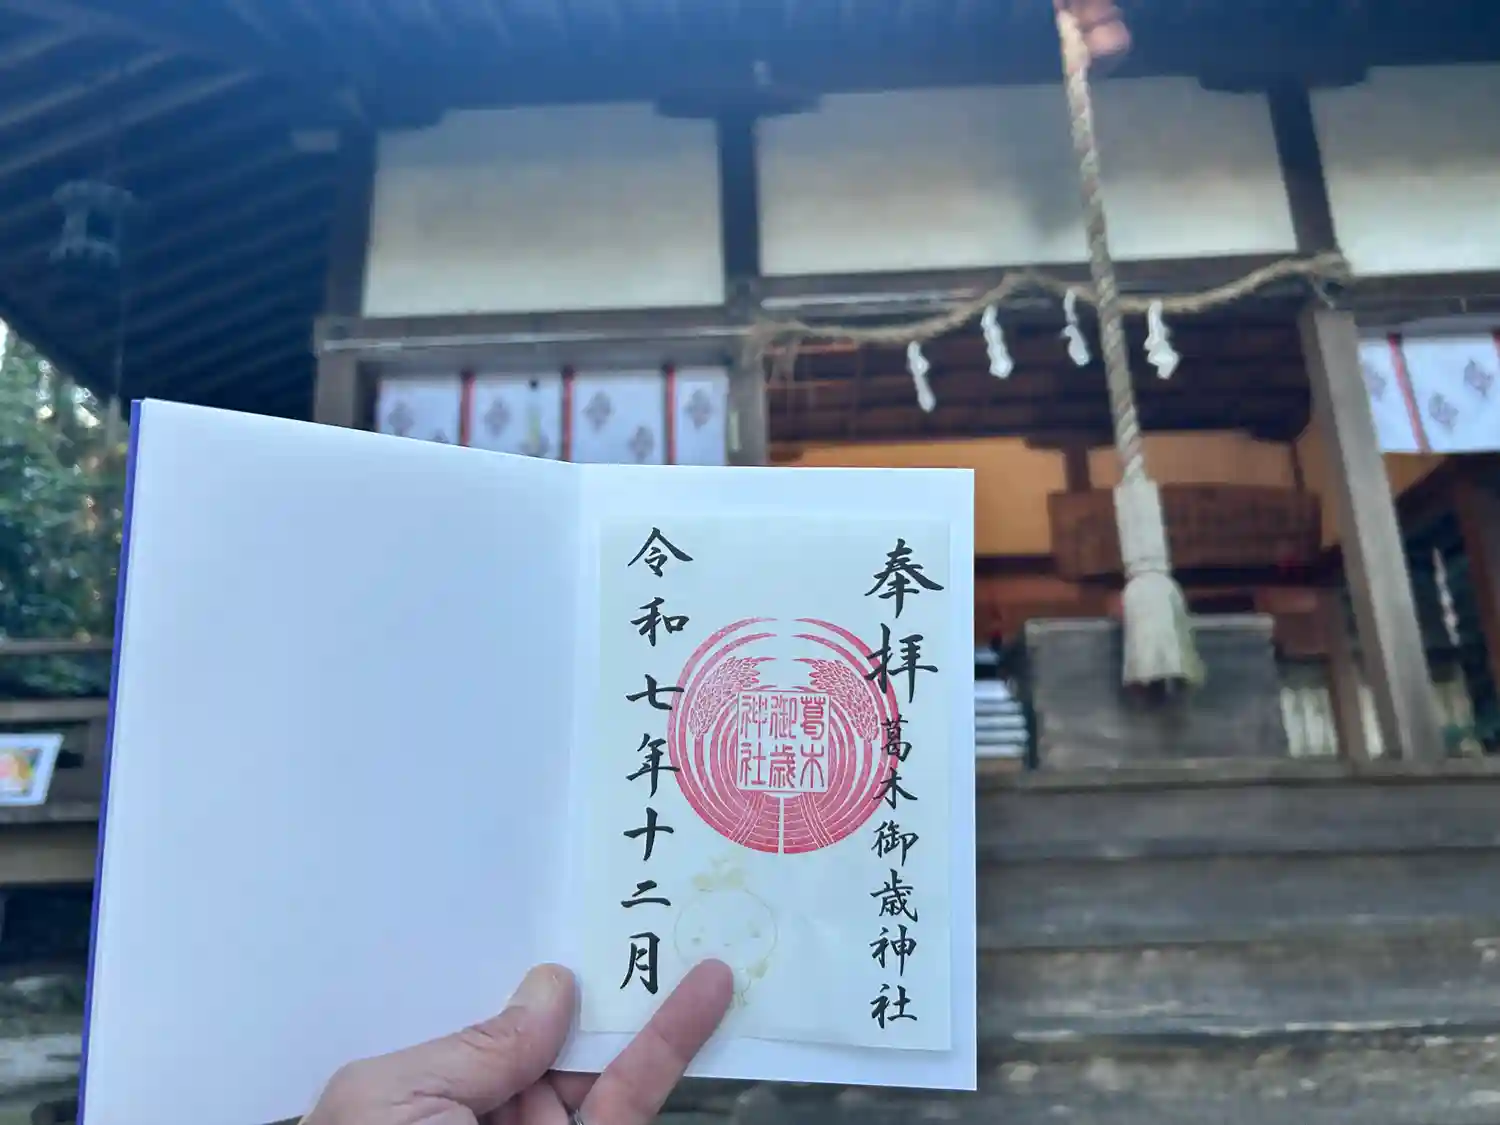 奉拝 葛木御歳神社
葛木
御歳
神社
令和七年十二月